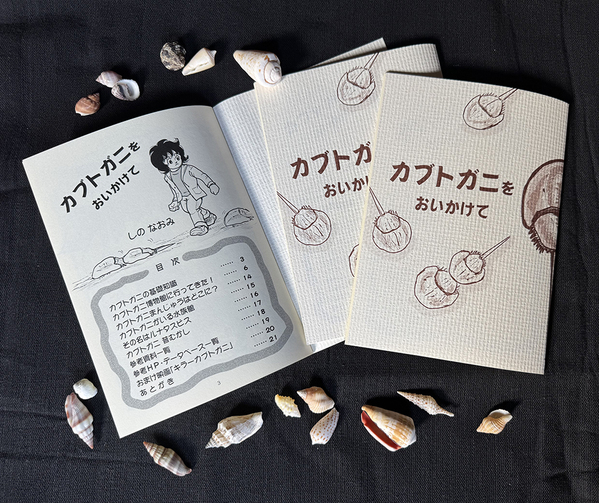 カブトガニを
おいかけて
しの なおみ
目 次
カブトガニの基礎知識 …… 3
カブトガニ博物館に行ってきた! …… 6
カブトガニまんじゅうはどこに? …… 14
カブトガニがいる水族館 …… 15
その名はルナタスピス …… 16
カブトガニ 昔むかし …… 17
参考資料一覧 …… 18
参考HP・データベース一覧 …… 19
おまけ映画「キラーカブトガニ」 …… 20
あとがき …… 21
3
カブトガ
おいか
カブトガニを
おいかけて